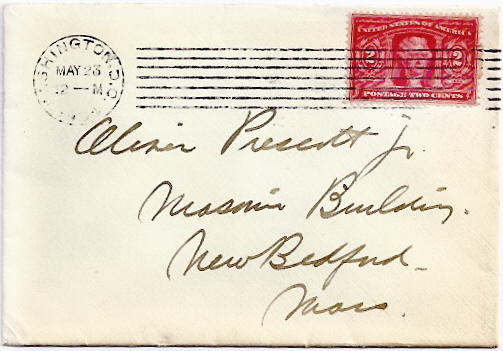 WASHINGTON, D.C.
MAY 23
12 - M.
UNITED STATES OF AMERICA
2 2
POSTAGE TWO CENTS
Oliver Prescott Jr.
Masonic Building.
New Bedford
Mass.